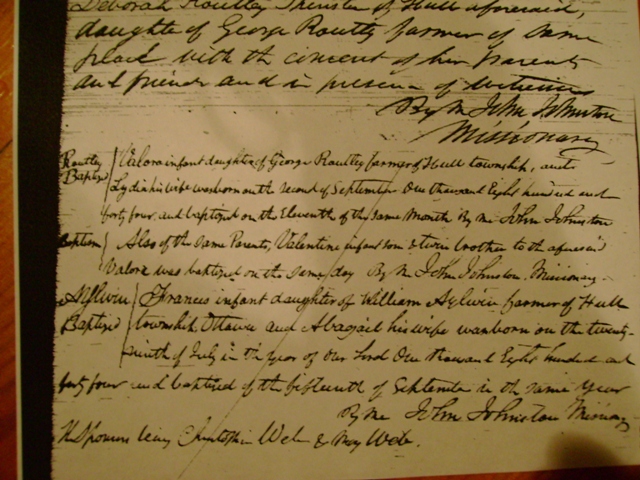 Deborah Routley Spinster of Hull aforesaid,
daughter of George Routley farmer of same
place with the concent of her parents
and friends and in presence of witnesses
By Me John Johnston
Missionary
Routley Baptized Valora infant daughter of George Routley farmer of Hull township, and
Lydia his wife was born on the second of September One thousand Eight hundred and
forty four, and baptized on the Eleventh of the same Month By me John Johnston
Baptism Also of the same Parents, Valentine infant son & twin brother to the aforesaid
Valora was baptized on the same day By Me John Johnston, Missionary
Aylwin Francis infant daughter of William Aylwin farmer of Hull
Baptized township, Ottawa and Abagail his wife was born on the twenty-
ninth of July in the year of our Lord One thousand Eight hundred and
forty four and baptized of the fifteenth of September in the same year
By me John Johnston Missionary
Sponsors being Christopher &